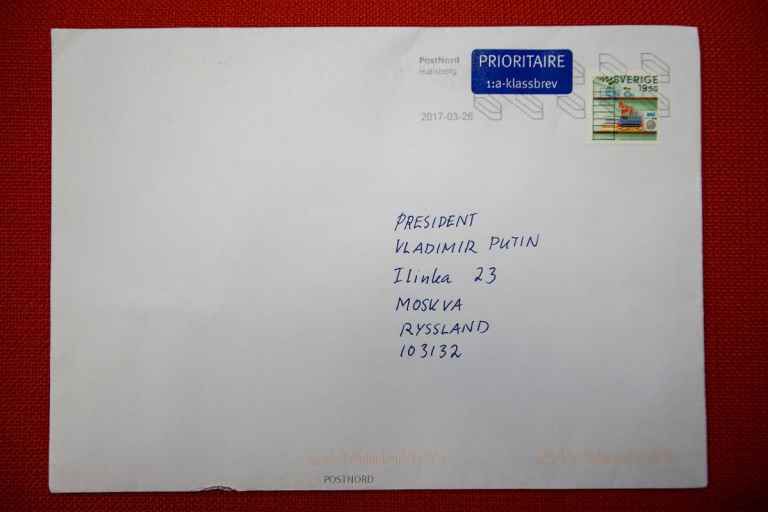 PostNord
Hallsberg
PRIORITAIRE
1:a-klassbrev
SVERIGE
2017-03-26
PRESIDENT
VLADIMIR PUTIN
Ilinka 23
MOSKVA
RYSSLAND
103132
POSTNORD